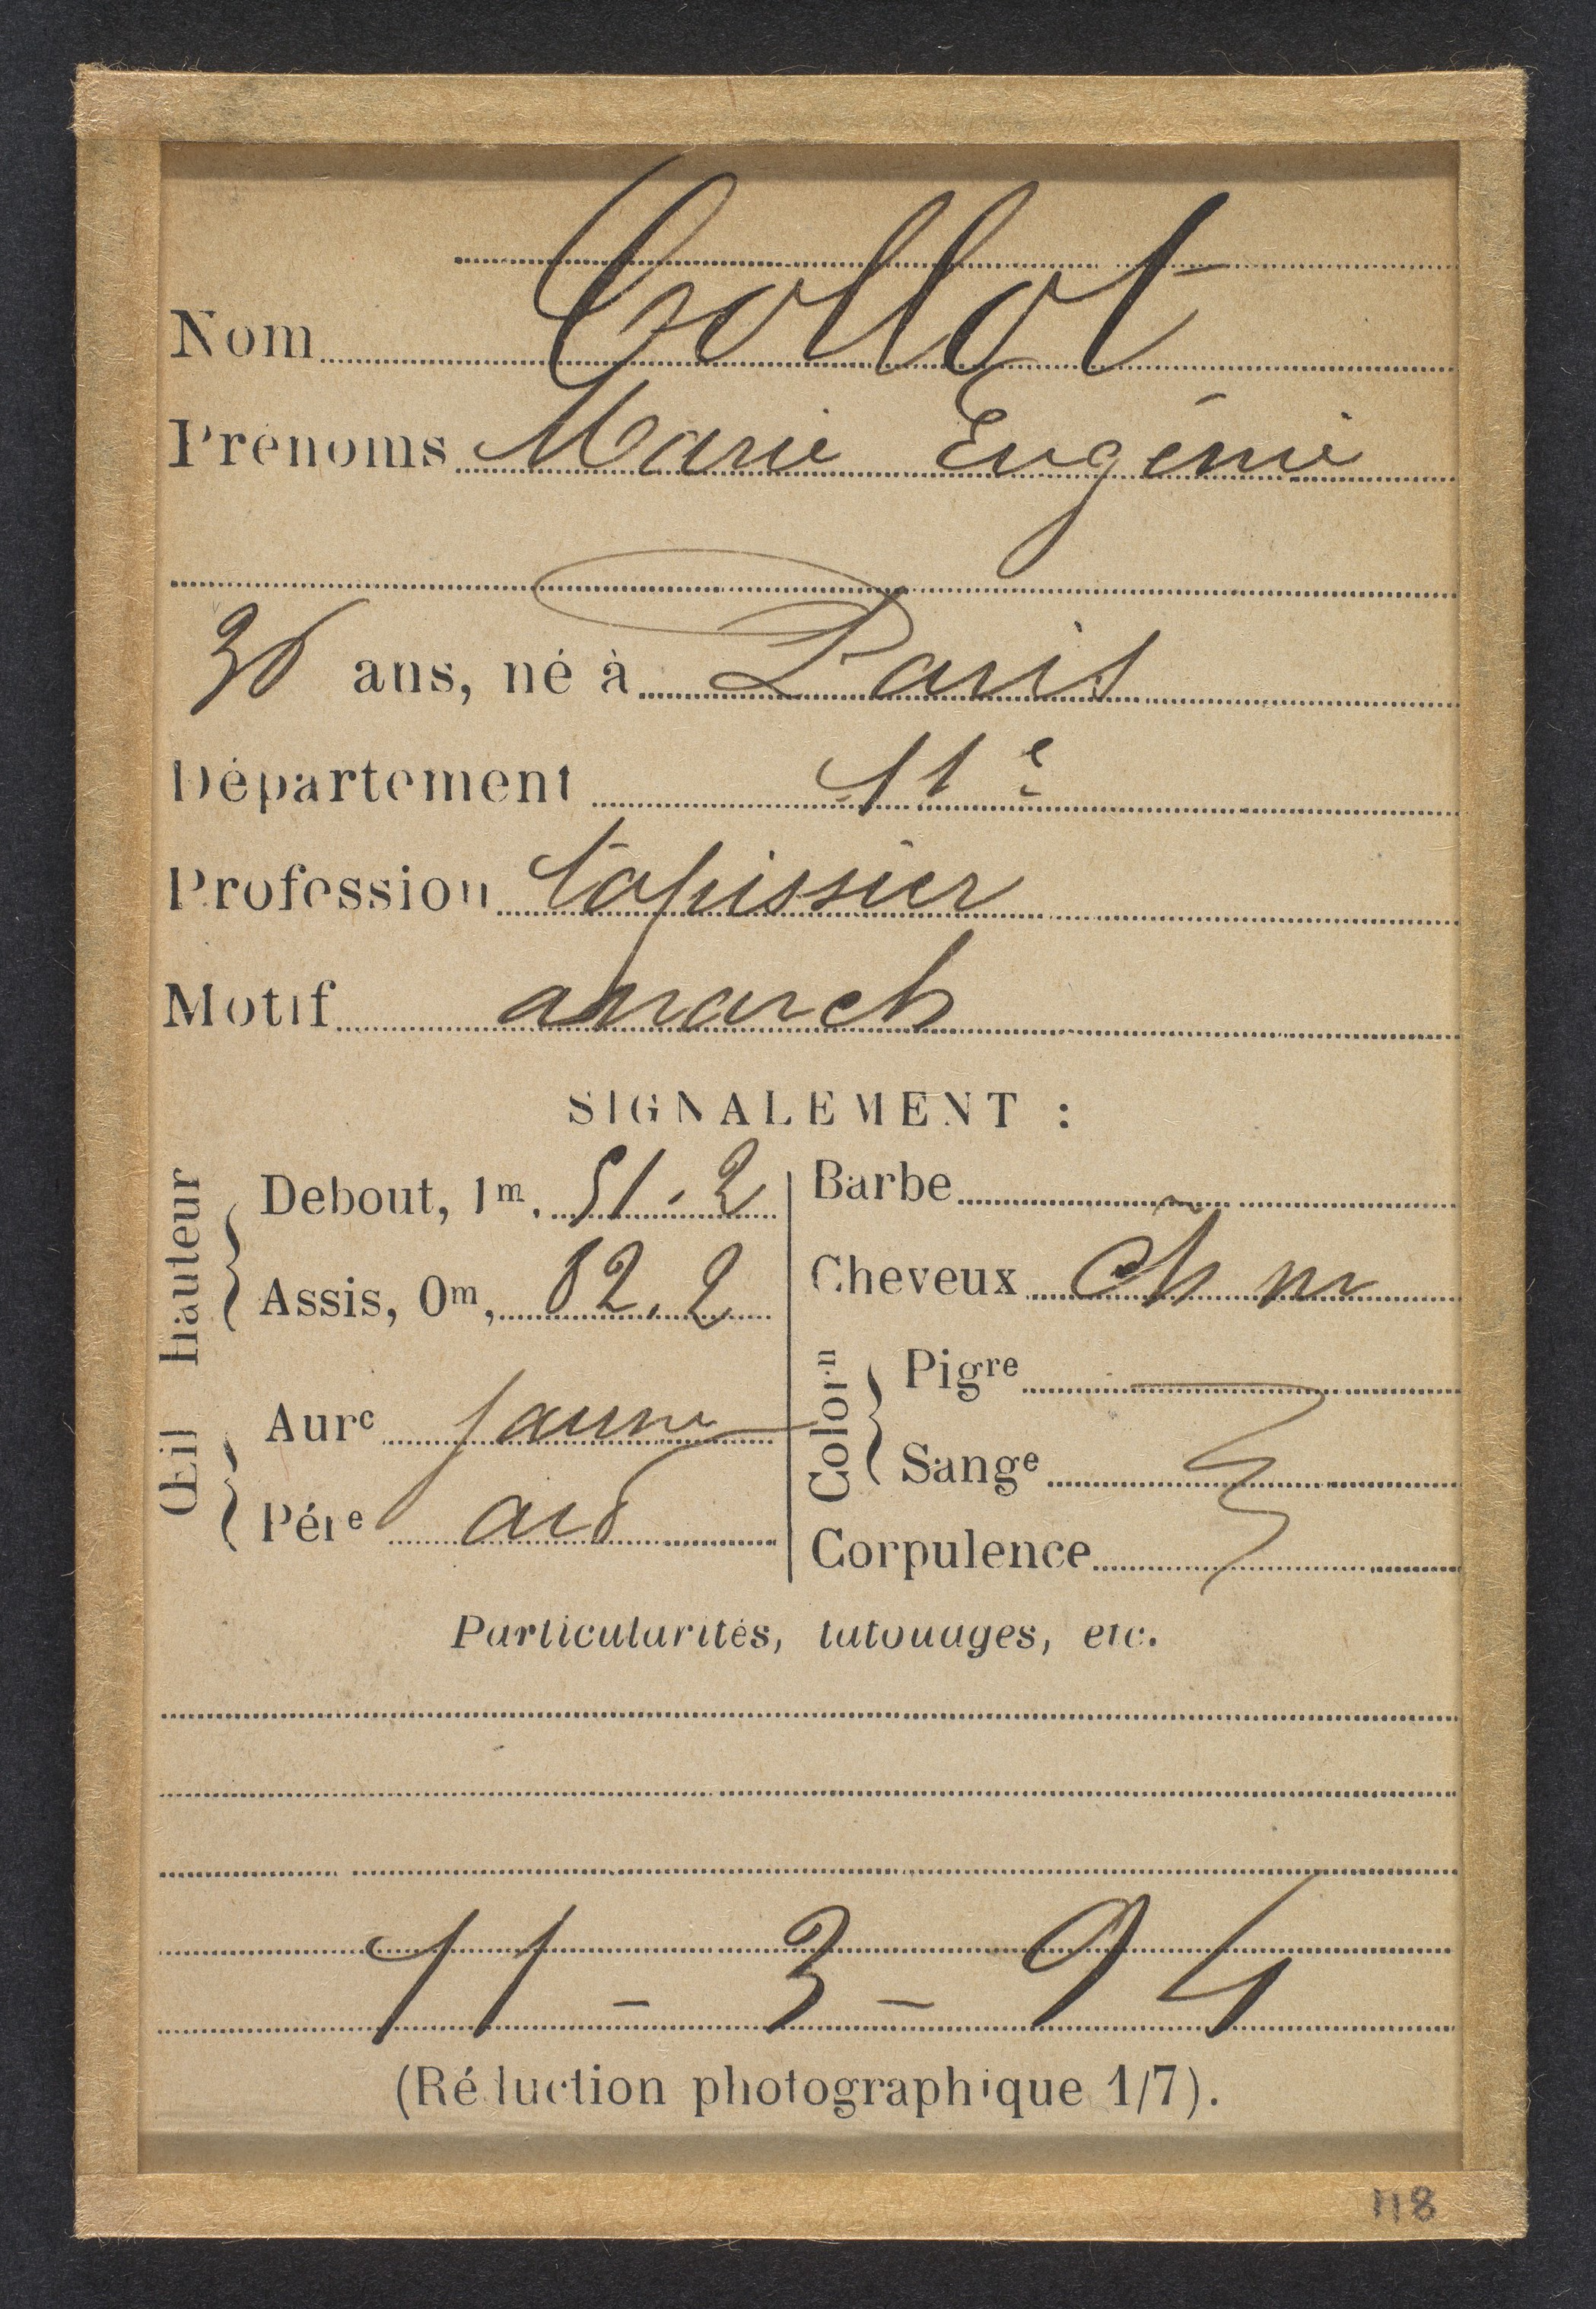 Nom Crollot
Prénoms Marie Eugénie
36 ans, né à Paris
Département 11e
Profession tapissier
Motif anarch
SIGNALEMENT :
Hauteur
Debout, 1m. 51.2
Assis, 0m, 82.2
Œil
Aure jaune
Pére ard
Barbe
Cheveux Ch m
Colorn
Pigre
Sange
Corpulence
Particularités, tatouages, etc.
11 - 3 - 94
(Réduction photographique 1/7).
118